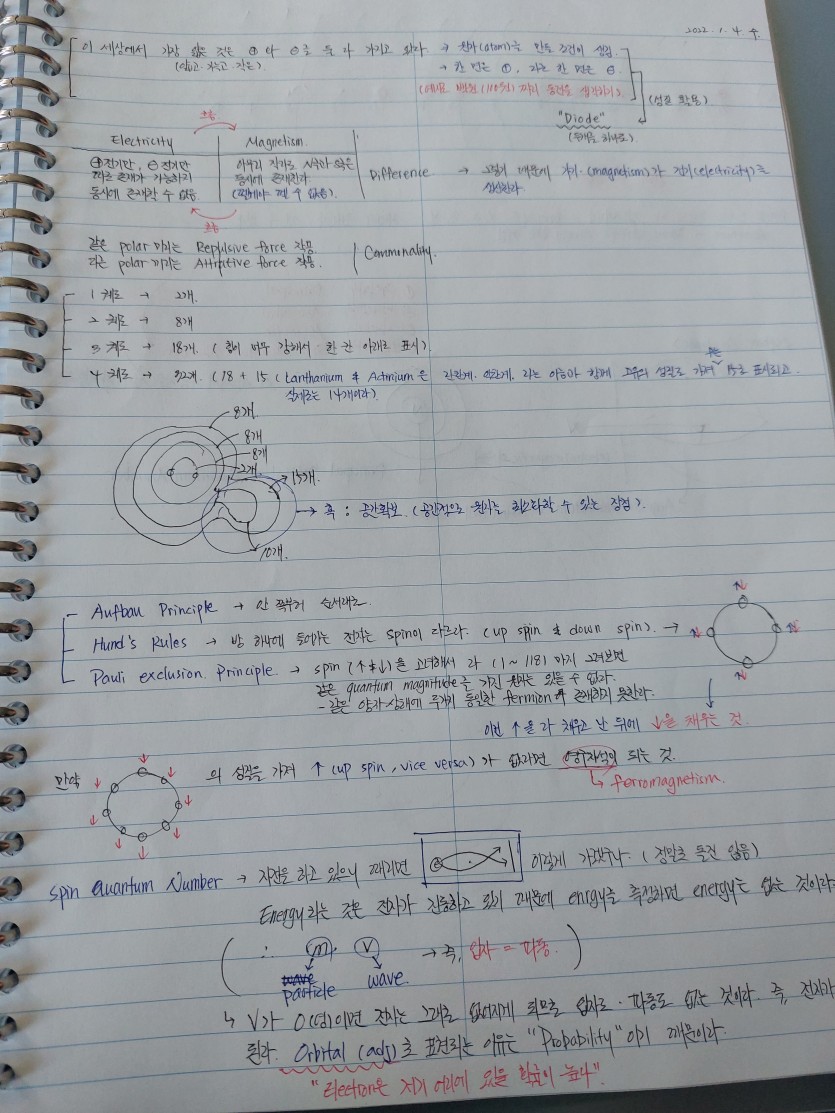 2022. 1. 4. 수.
이 세상에서 가장 많은 것은 ⊕ 나 ⊖로 둘 다 가지고 있다. → 원자(atom)을 만들 조건이 생김.
→ 한 면은 ⊕, 다른 한 면은 ⊖.
(예시로 백원(100원) 짜리 동전을 생각하기).
(성질 활용)
"Diode"
(두개를 하나로)
흐름
Electricity Magnetism.
⊕전기만, ⊖전기만 아무리 작게로 N극과 S극은
따로 존재가 가능하지 동시에 존재한다
동시에 존재할 수 없음. 수 없음).
Difference → 그렇기 때문에 자기(magnetism)가 전기(electricity)를
생성한다.
흐름
같은 polar 끼리는 Repulsive force 작용
다른 polar 끼리는 Attractive force 작용.
Commonality.
1 궤도 → 2개.
2 궤도 → 8개
3 궤도 → 18개. (힘이 너무 강해서 한 칸 아래로 표시)
4 궤도 → 32개. (18 + 15 (Lanthanium & Actinium은 다른 아이들과 함께 고유의 성질을 가져 15로 표시되고
실제로는 14개이다).
8개.
8개
8개
2개.
15개.
10개.
→ 즉 : 공간확보. (공간적으로 원자를 최소화할 수 있는 장점).
Aufbau Principle → 안 쪽부터 순서대로.
Hund's Rules → 방 하나에 들어가는 전자는 spin이 다르다. (up spin & down spin). →
N N N N
Pauli exclusion Principle → spin (↑&↓)을 고려해서 다 (1 ~ 118) 까지 그려보면
같은 quantum magnitude를 가진 원자는 있을 수 없다.
- 같은 양자상태에 두개의 동일한 fermion이 존재하지 못한다.
이런 ↑을 다 채우고 난 뒤에 ↓을 채우는 것.
만약 의 성질을 가져 ↑ (up spin, vice versa)가 없지면 영구자석이 되는 것.
↳ ferromagnetism.
spin Quantum Number → 자전을 하고 있으니 때리면 이렇게 가겠구나. (정말로 틀린 않음)
Energy라는 것은 전자가 진동하고 있기 때문에 energy를 측정하면 energy는 없는 것이라
∴ m. v → 즉, 입자 = 파동.
wave
particle wave.
↳ V가 0(영)이면 전자는 그대로 없어지게 되므로 입자로 · 파동도 없는 것이라. 즉, 전자가
된다. Orbital (adj)로 표현되는 이유는 "Probability" 이기 때문이라.
"Electron은 저기 어디에 있을 확률이 높나".